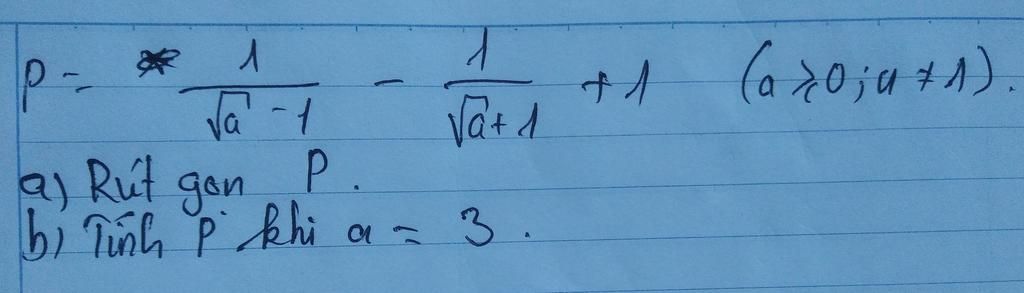 P = 1/(√a - 1) - 1/(√a + 1) + 1 (a ≥ 0; a ≠ 1).
a) Rút gọn P.
b) Tính P khi a = 3.